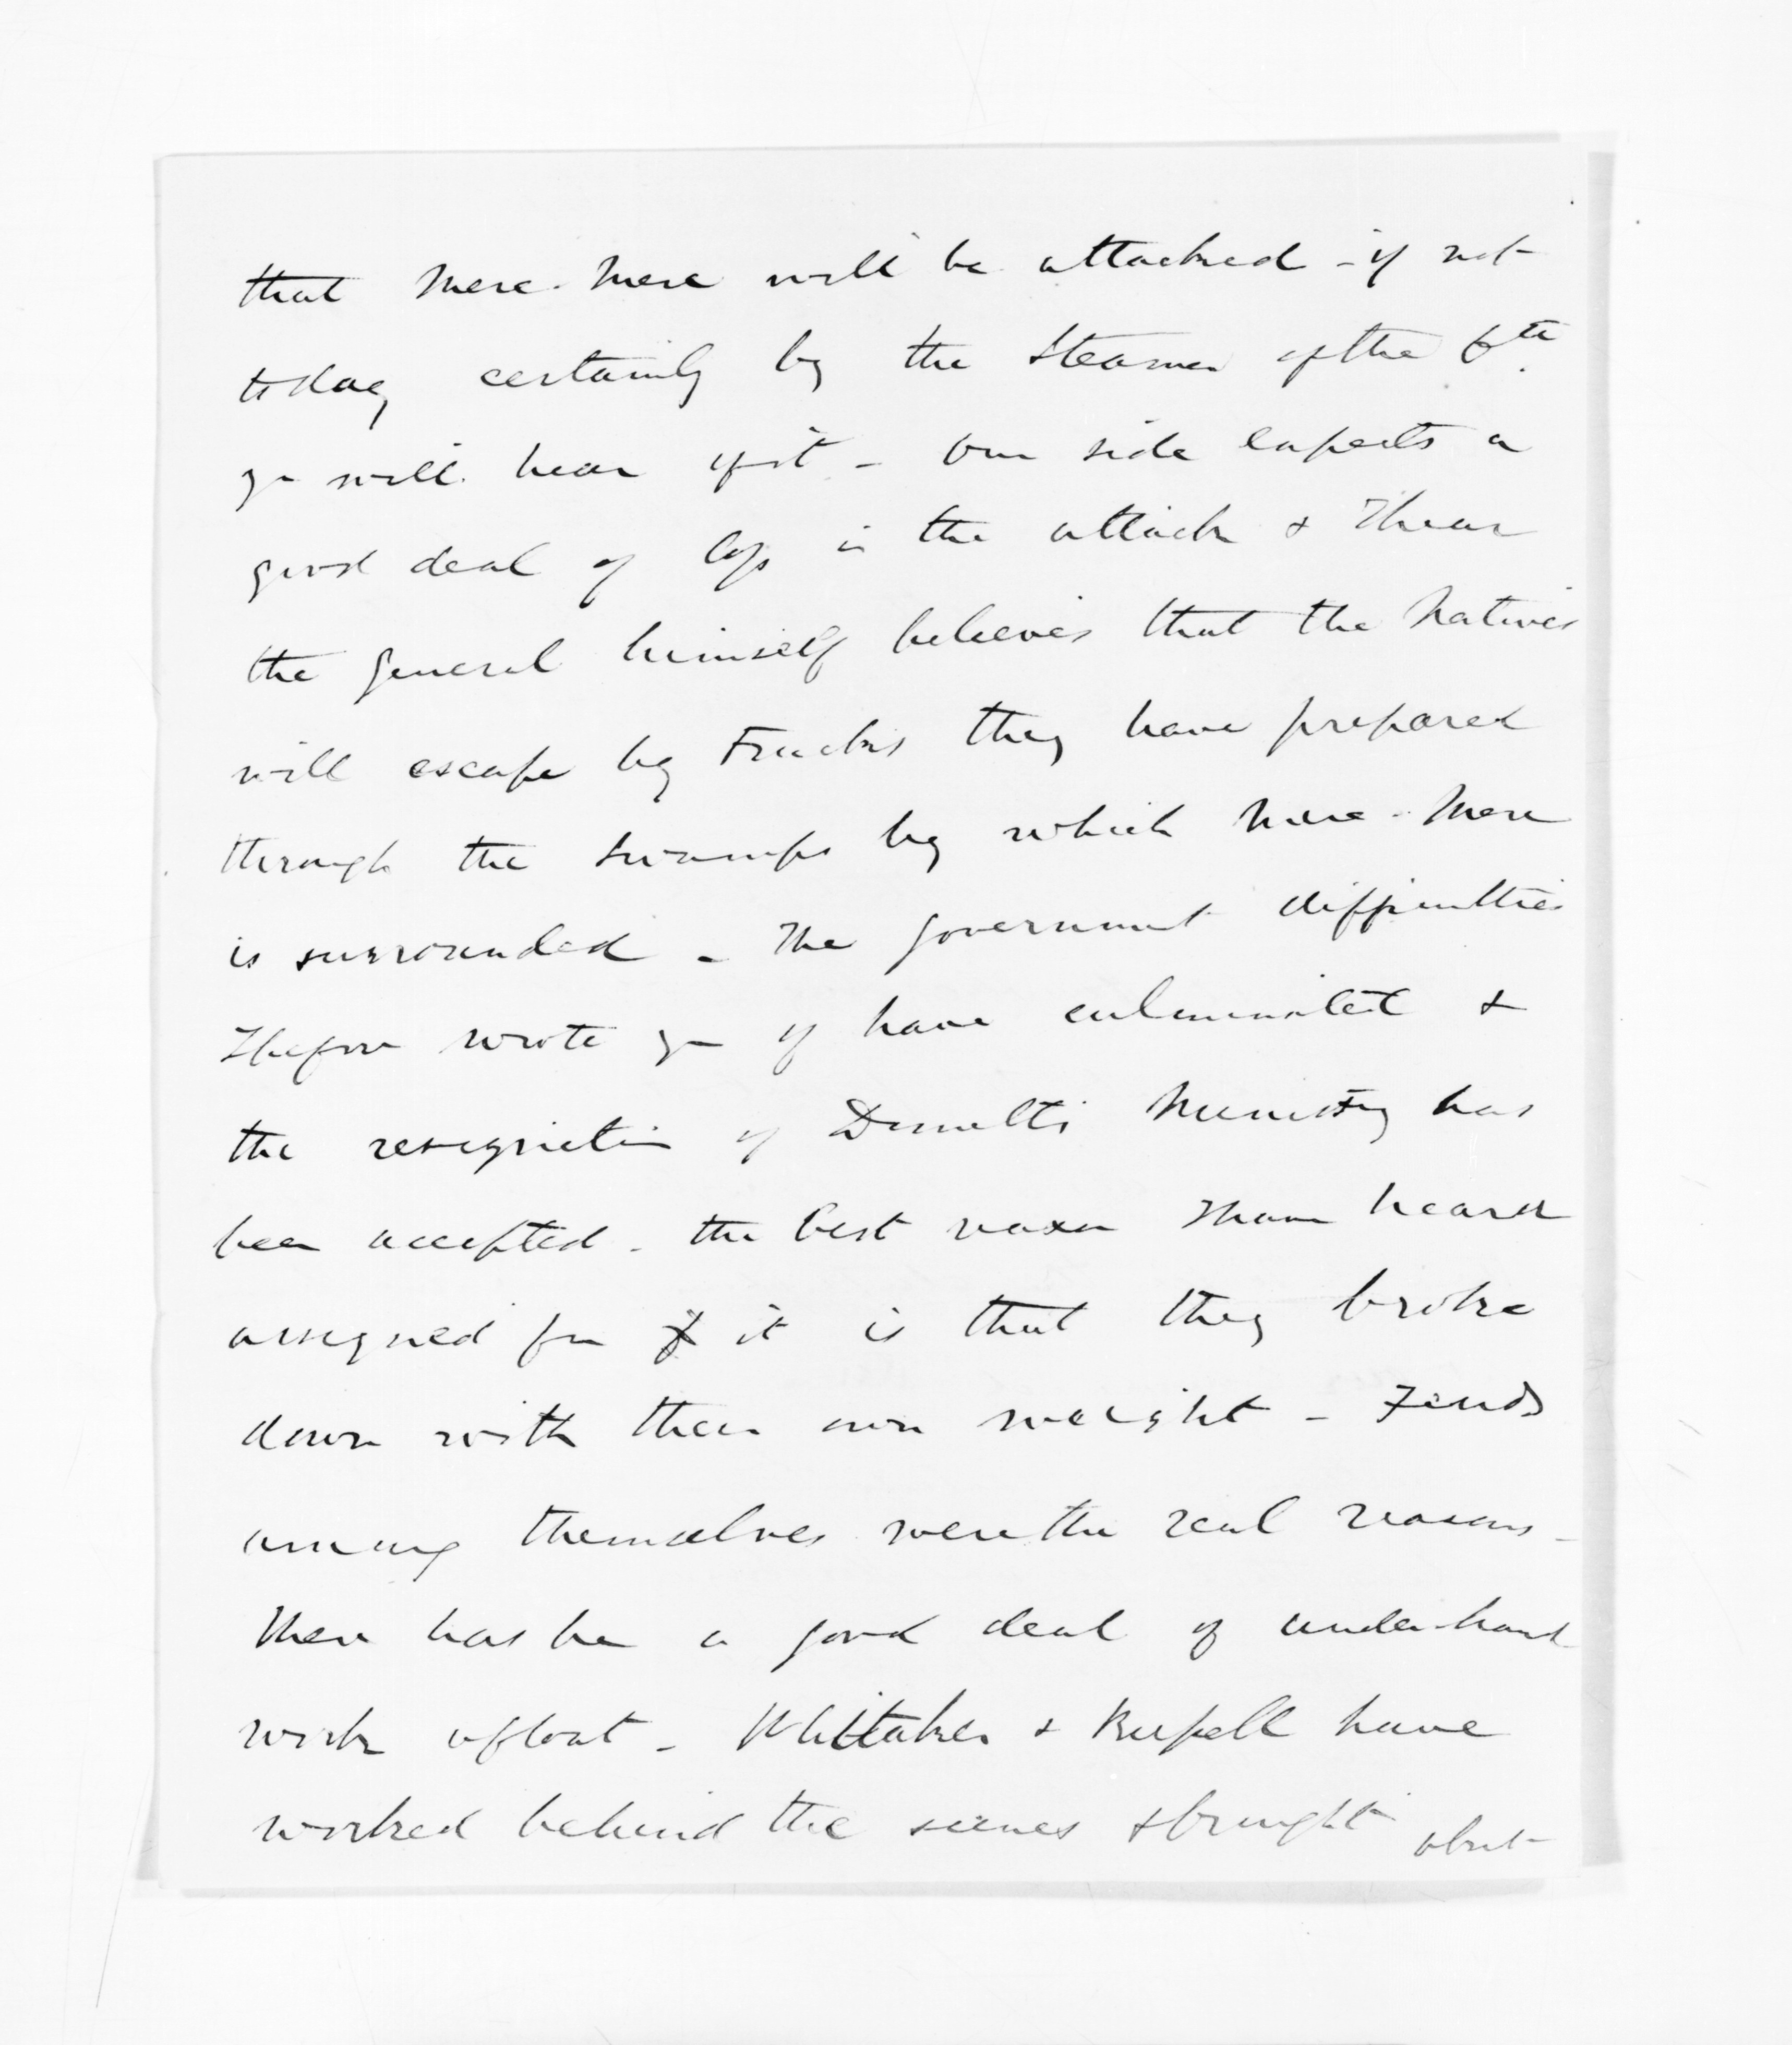 that Mere-Mere will be attacked - if not
today certainly by the Steamer of the 6th.
you will hear of it - Our side expects a
good deal of loss in the attack & I hear
the General himself believes that the Natives
will escape by Tracks they have prepared
through the Swamps by which Mere-Mere
is surrounded - The Government difficulties
I before wrote you of have culminated &
the resignation of Domett's Ministry has
been accepted - the best reason I have heard
assigned for it is that they broke
down with their own weight - Feuds
among themselves were the real reasons -
There has been a good deal of under-hand
work afloat - Whittaker & Russell have
worked behind the scenes & brought about